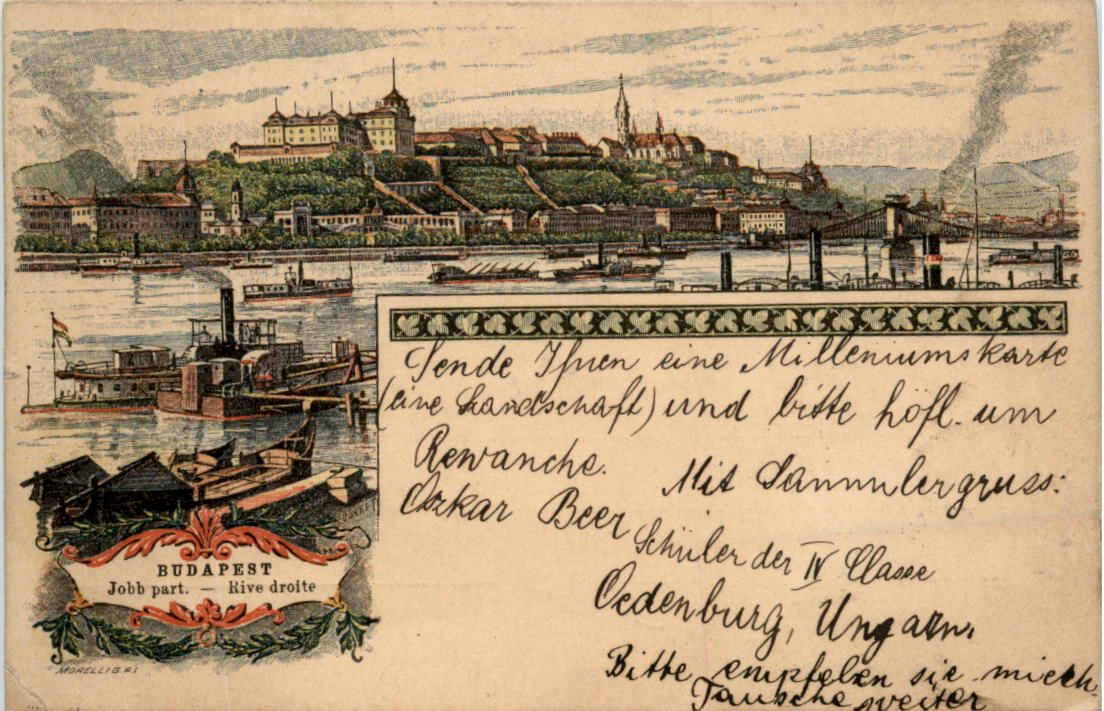 Sende Ihnen eine Milleniumskarte
(eine Landschaft) und bitte höfl. um
Rewanche.
Mit Sammlergruss:
Oszkar Beer
Schüler der IV Classe
Oedenburg, Ungarn.
Bitte empfelen sie mich
Tausche weiter
BUDAPEST
Jobb part. — Rive droite
MORELLI G. F.